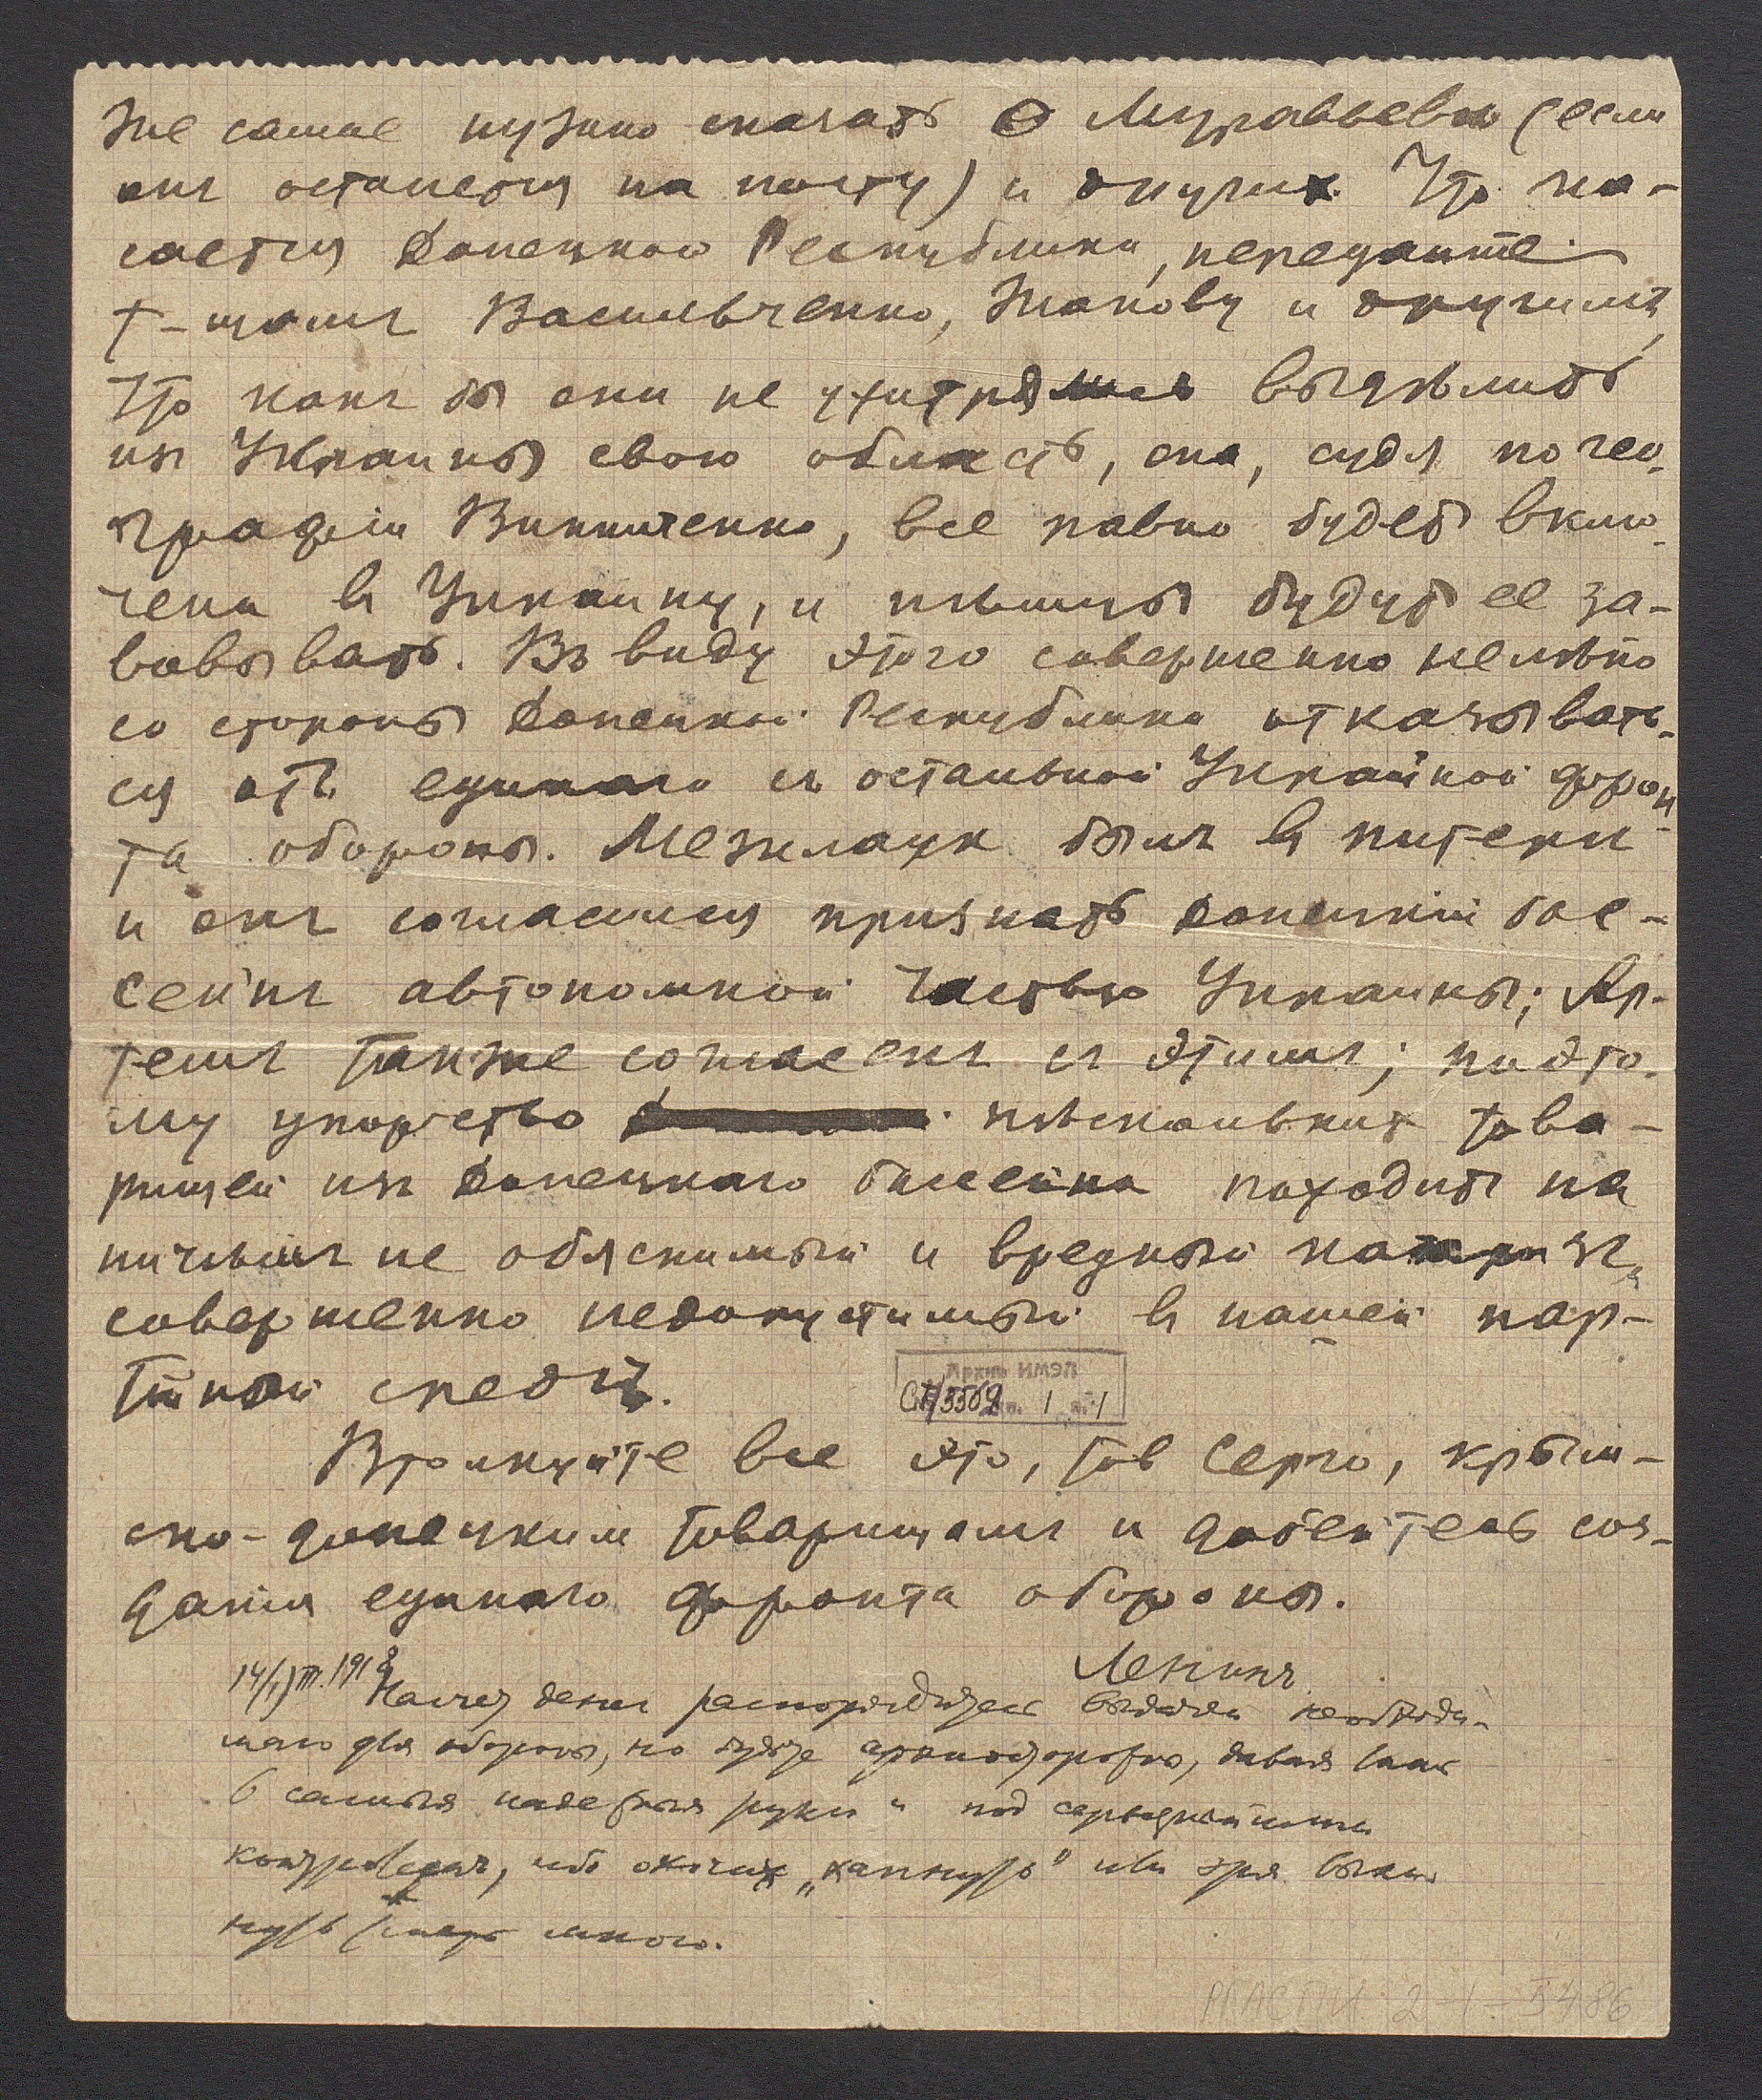 же самое нужно сказать о Муравьевѣ (если
онъ останется на посту) и другихъ. Что ка-
сается Донецкой Республики, передайте
т-щамъ Васильченко, Жакову и другимъ,
что какъ бы они не ухитрялись выдѣлить
из Украины свою область, она, судя по гео-
графіи Винниченко, все равно будет вклю-
чена в Украину, и нѣмцы будут ее за-
вовывать. Въ виду этого совершенно нелѣпо
со стороны Донецкой Республики отказывать-
ся отъ единаго съ остальной Украиной фрон-
та обороны. Межлаук былъ в питере
и онъ согласился признать Донецкий бас-
сейнъ автономной частью Украины; Ар-
темъ также согласенъ съ этимъ; поэто-
му упорство нѣскольких това-
рищей из Донецкаго бассейна походит на
ничѣмъ не обяснимый и вредный каприз,
совершенно недопустимый в нашей пар-
тійной средѣ.
Архив ИМЭЛ
1
Втолкуйте все это, тов Серго, крым-
ско-донецким товарищамъ и добейтесь соз-
дания единаго фронта обороны.
Ленинъ
14/III. 1918
Насчет денег распорядитесь выдачей необходи-
маго для обороны, но будьте архиосторожны, давая лишь
в самыя надежныя руки и под серьезнейшим
контролем, ибо охочих „хапнуть“ или зря выки-
нуть много.
РГАСПИ 2-1-5486